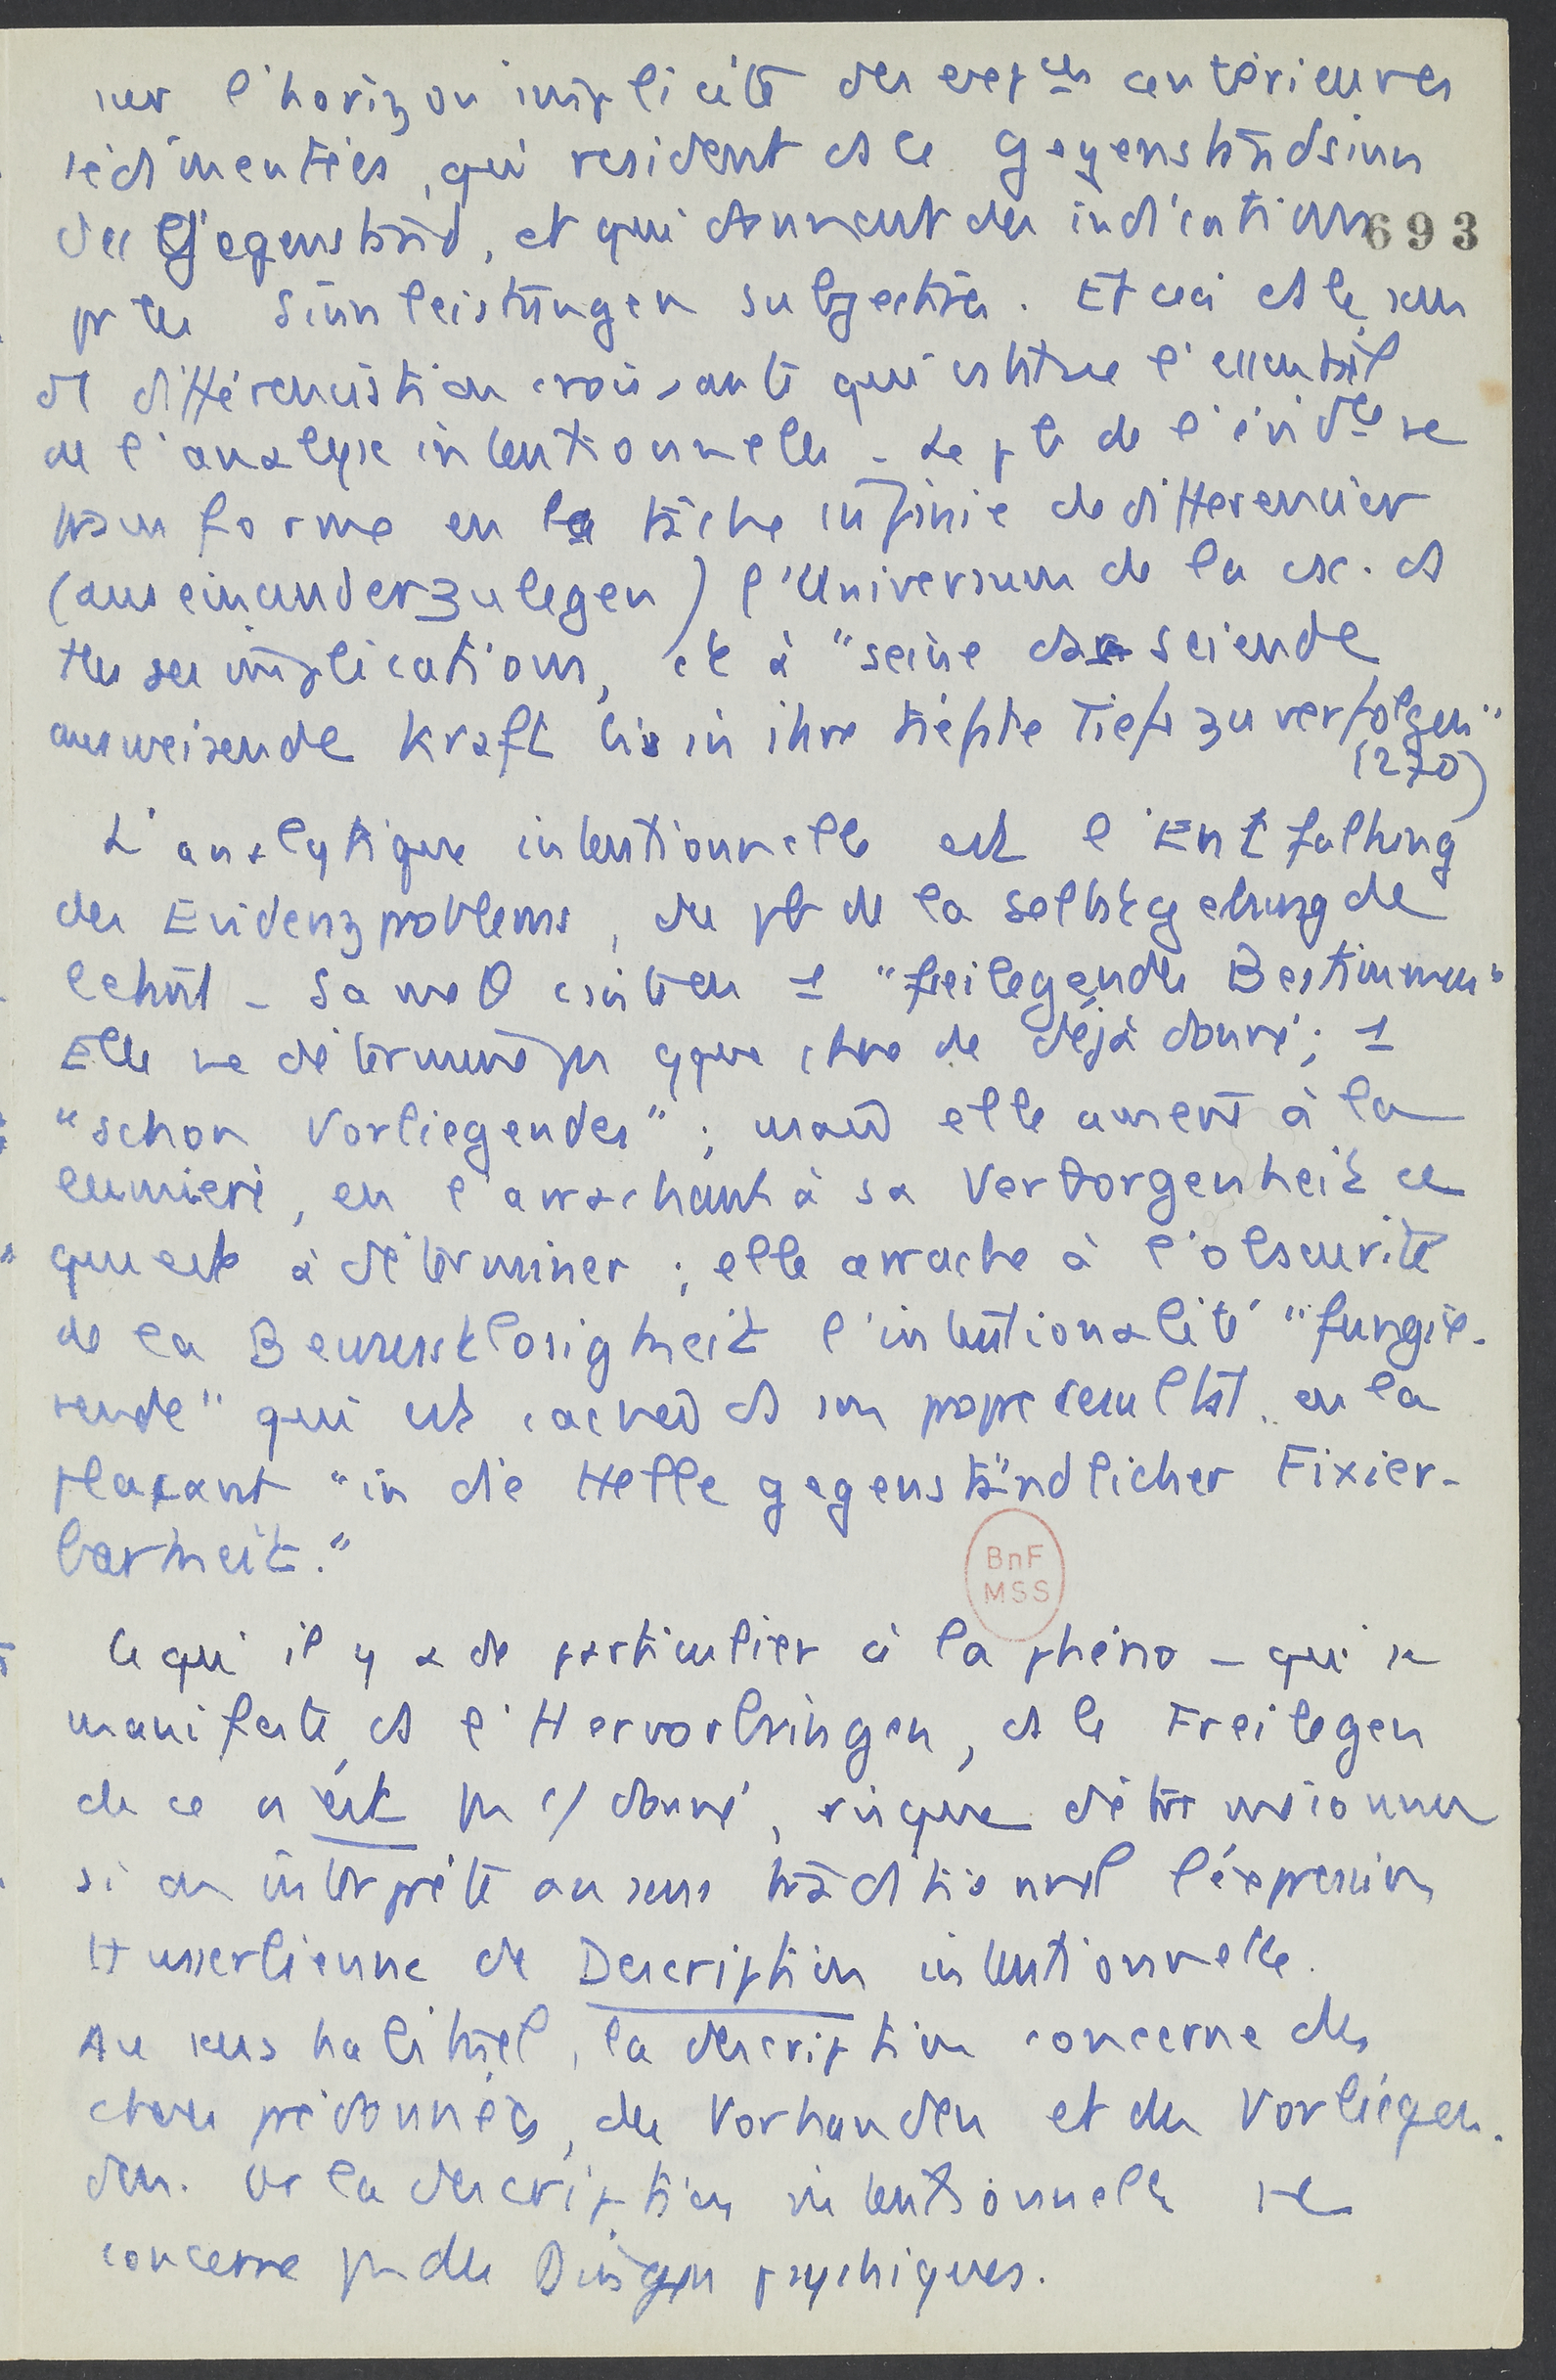 sur l'horizon implicite des exp ces antérieures
sédimentées, qui resident ds le Gegenstandsinn
des Gegenstand, et qui donnent des indications
693
pr les Sinnleistungen subjectives. Et ceci ds le sens
d'1 différenciation croissante qui cstitue l'essentiel
de l'analyse intentionnelle - Le pb de l'évid ce se
transforme en la tâche infinie de differencier
(auseinanderzulegen) l'Universum de la csc. ds
ttes ses implications, et à "seine das seiende
ausweisende Kraft bis in ihre tiefste Tiefe zu verfolgen"
(270)
L'analytique intentionnelle est l'Entfaltung
des Evidenzproblems, du pb de la Selbstgebung de
l'etant - Sa méθ csiste en 1 "freilegendes Bestimmen"
Elle ne détermine pas qque chose de déjà donné; 1
"schon Vorliegendes"; mais elle amène à la
lumière, en l'arrachant à sa Verborgenheit ce
qui est à déterminer; elle arrache à l'obscurité
de la Bewusstlosigkeit l'intentionalité "fungie-
rende" qui est cachée ds son propre resultat, en la
plaçant "in die Helle gegenständlicher Fixier-
barkeit."
BnF
MSS
Ce qu'il y a de particulier à la phéno - qui se
manifeste ds l'Hervorbringen, ds le Freilegen
de ce n'est pas donné, risque d'être méconnu
si on interprète au sens traditionnel l'expression
Husserlienne de Description intentionnelle.
Au sens habituel, la description concerne des
choses prédonnées, des Vorhanden et des Vorliegen-
den. Or la description intentionnelle ne
concerne pas des Dingen psychiques.